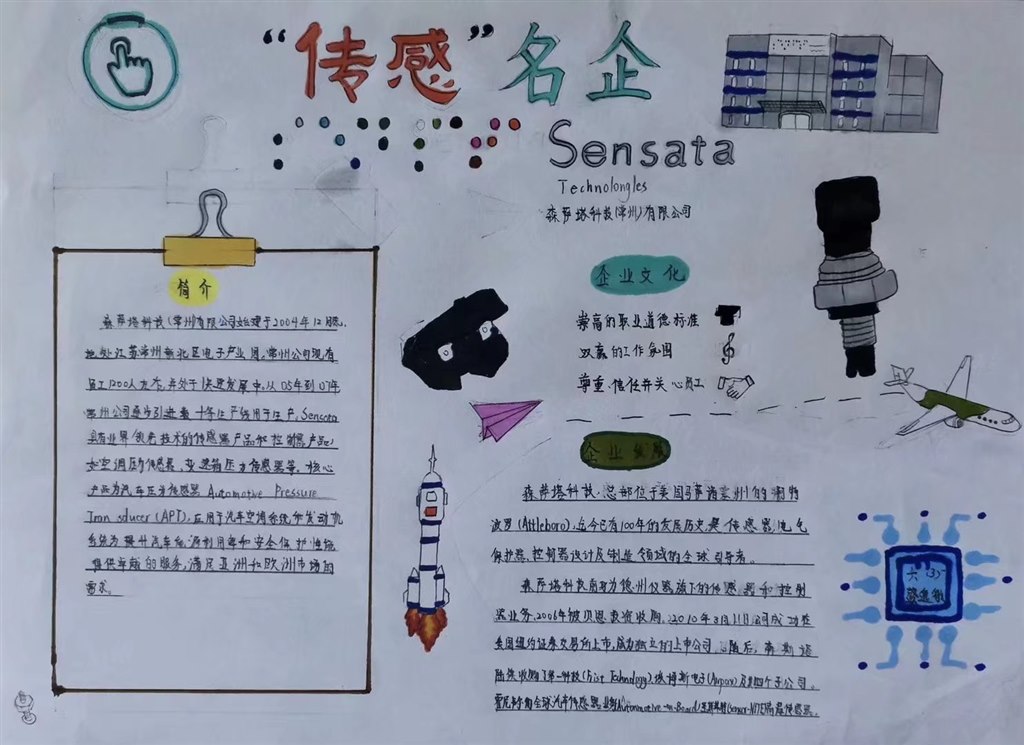 “传感”名企
Sensata
Technolongles
森萨塔科技(常州)有限公司
简介
森萨塔科技(常州)有限公司始建于2004年12月底,
地处江苏常州新北区电子产业园,常州公司现有
员工1200人左右,并处于快速发展中,从05年到07年
常州公司逐步引进数十条生产线用于生产,Sensata
具有业界领先技术的传感器产品和控制器产品,
如空调压力传感器,变速箱压力传感器等。核心
产品为汽车压力传感器 Automotive Pressure
(APT),应用于汽车空调系统和发动机
系统为提升汽车能源利用率和安全保护性能
提供卓越的服务,满足亚洲和欧洲市场的
需求。
企业文化
崇高的职业道德标准
双赢的工作氛围
尊重、信任并关心员工
企业发展
森萨塔科技,总部位于美国
(Attleboro),迄今已有100年的发展历史,是传感器,电气
保护器,控制器设计及制造领域的全球引导者。
森萨塔科技前身为德州仪器旗下的传感器和控制
器业务,2006年被贝恩资资收购,2010年3月11日公司成功在
美国纽约证券交易所上市,成为独立的上市公司,随后,森斯塔
陆续收购了第一科技(First Technology)、埃博斯电子(Airpax)及其四个子公司、
霍尼韦尔的全球汽车传感器业务Automotive-on-Board
六(3)